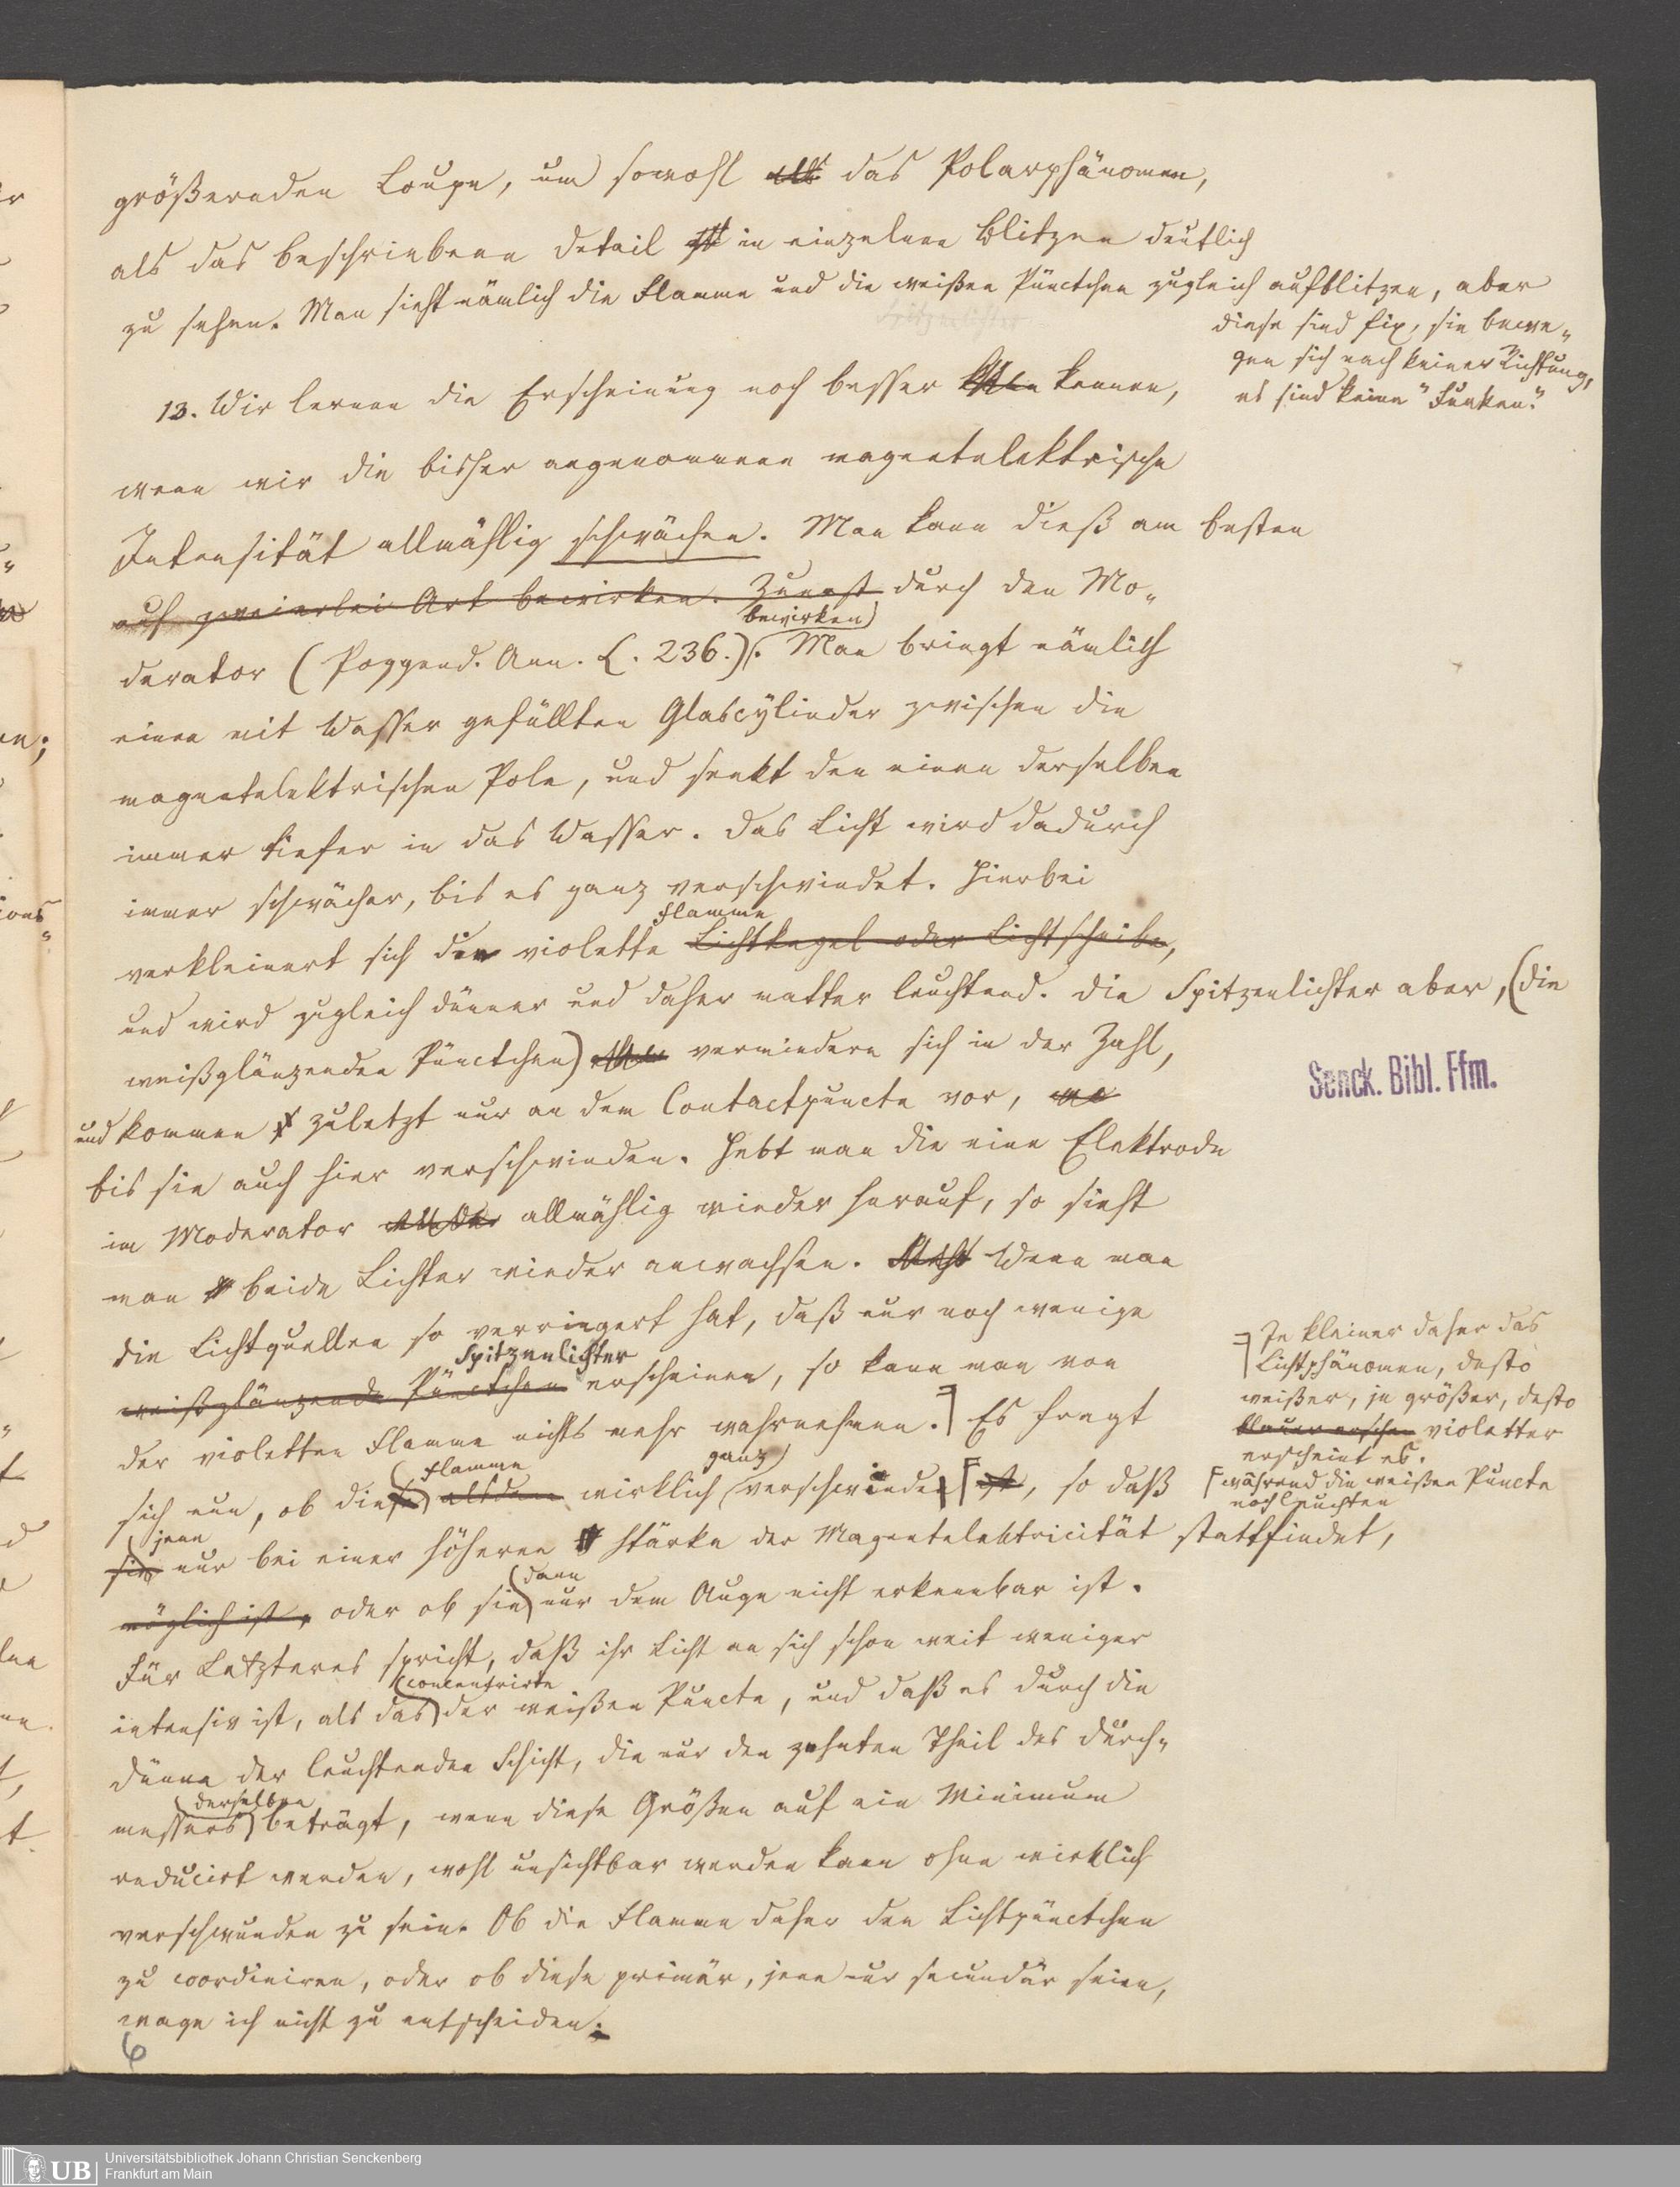 größernden Loupe, um sowohl das Polarphänomen,
als das beschriebene Detail in einzelnen Blitzen deutlich
zu sehen. Man sieht nämlich die Flamme und die weißen Pünctchen zugleich aufblitzen, aber
diese sind fix, sie bewe-
gen sich nach keiner Richtung,
es sind keine "Funken".
13. Wir lernen die Erscheinung noch besser kennen,
wenn wir die bisher angenommene magnetelektrische
Intensität allmählig schwächen. Man kann dieß am besten
auf zweierlei Art bewirken. Zuerst durch den Mo-
bewirken
derator (Poggend. Ann. L. 236.). Man bringt nämlich
einen mit Wasser gefüllten Glascylinder zwischen die
magnetelektrischen Pole, und senkt den einen derselben
immer tiefer in das Wasser. Das Licht wird dadurch
immer schwächer, bis es ganz verschwindet. Hierbei
Flamme
verkleinert sich die violette Lichtkegel oder Lichtscheibe,
und wird zugleich dünner und daher matter leuchtend. Die Spitzenlichter aber, (die
weißglänzenden Pünctchen) vermindern sich in der Zahl,
und kommen zuletzt nur an dem Contactpuncte vor, wo
bis sie auch hier verschwinden. Hebt man die eine Elektrode
im Moderator allmählig wieder herauf, so sieht
man beide Lichter wieder anwachsen. Wenn man
die Lichtquellen so verringert hat, daß nur noch wenige
Spitzenlichter
weißglänzende Pünctchen erscheinen, so kann man von
der violetten Flamme nichts mehr wahrnehmen. Es fragt
Je kleiner daher das
Lichtphänomen, desto
weißer, je größer, desto
blauer erschei violetter
erscheint es.
Flamme ganz
sich nun, ob diese alsdann wirklich verschwindet ist, so daß
während die weißen Puncte
noch leuchten
jene
sie nur bei einer höheren Stärke der Magnetelektricität stattfindet,
dann
möglich ist, oder ob sie nur dem Auge nicht erkennbar ist.
Für Letzteres spricht, daß ihr Licht an sich schon weit weniger
concentrirte
intensiv ist, als das der weißen Puncte, und daß es durch die
Dünne der leuchtenden Schicht, die nur den zehnten Theil des Durch-
derselben
messers beträgt, wenn diese Größen auf ein Minimum
reducirt werden, wohl unsichtbar werden kann ohne wirklich
verschwunden zu sein. Ob die Flamme daher den Lichtpünctchen
zu coordiniren, oder ob diese primär, jene nur secundär seien,
wage ich nicht zu entscheiden.
6
Senck. Bibl. Ffm.
UB
Universitätsbibliothek Johann Christian Senckenberg
Frankfurt am Main